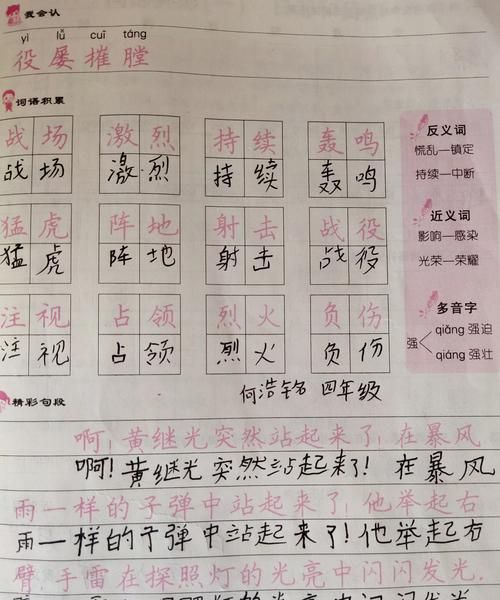 我会认
yì lǚ cuī táng
役 屡 摧 膛
词语积累
战场 激烈 持续 轰鸣
战场 激烈 持续 轰鸣
猛虎 阵地 射击 战役
猛虎 阵地 射击 战役
注视 占领 烈火 负伤
注视 占领 烈火 负伤
反义词
慌乱—镇定
持续—中断
近义词
影响—感染
光荣—荣耀
多音字
强
qiǎng 强迫
qiáng 强壮
何浩铭 四年级
精彩句段
啊!黄继光突然站起来了!在暴风
啊!黄继光突然站起来了!在暴风
雨一样的子弹中站起来了!他举起右
雨一样的子弹中站起来了!他举起右
臂,手雷在探照灯的光亮中闪闪发光。
臂,手雷在探照灯的光亮中闪闪发光